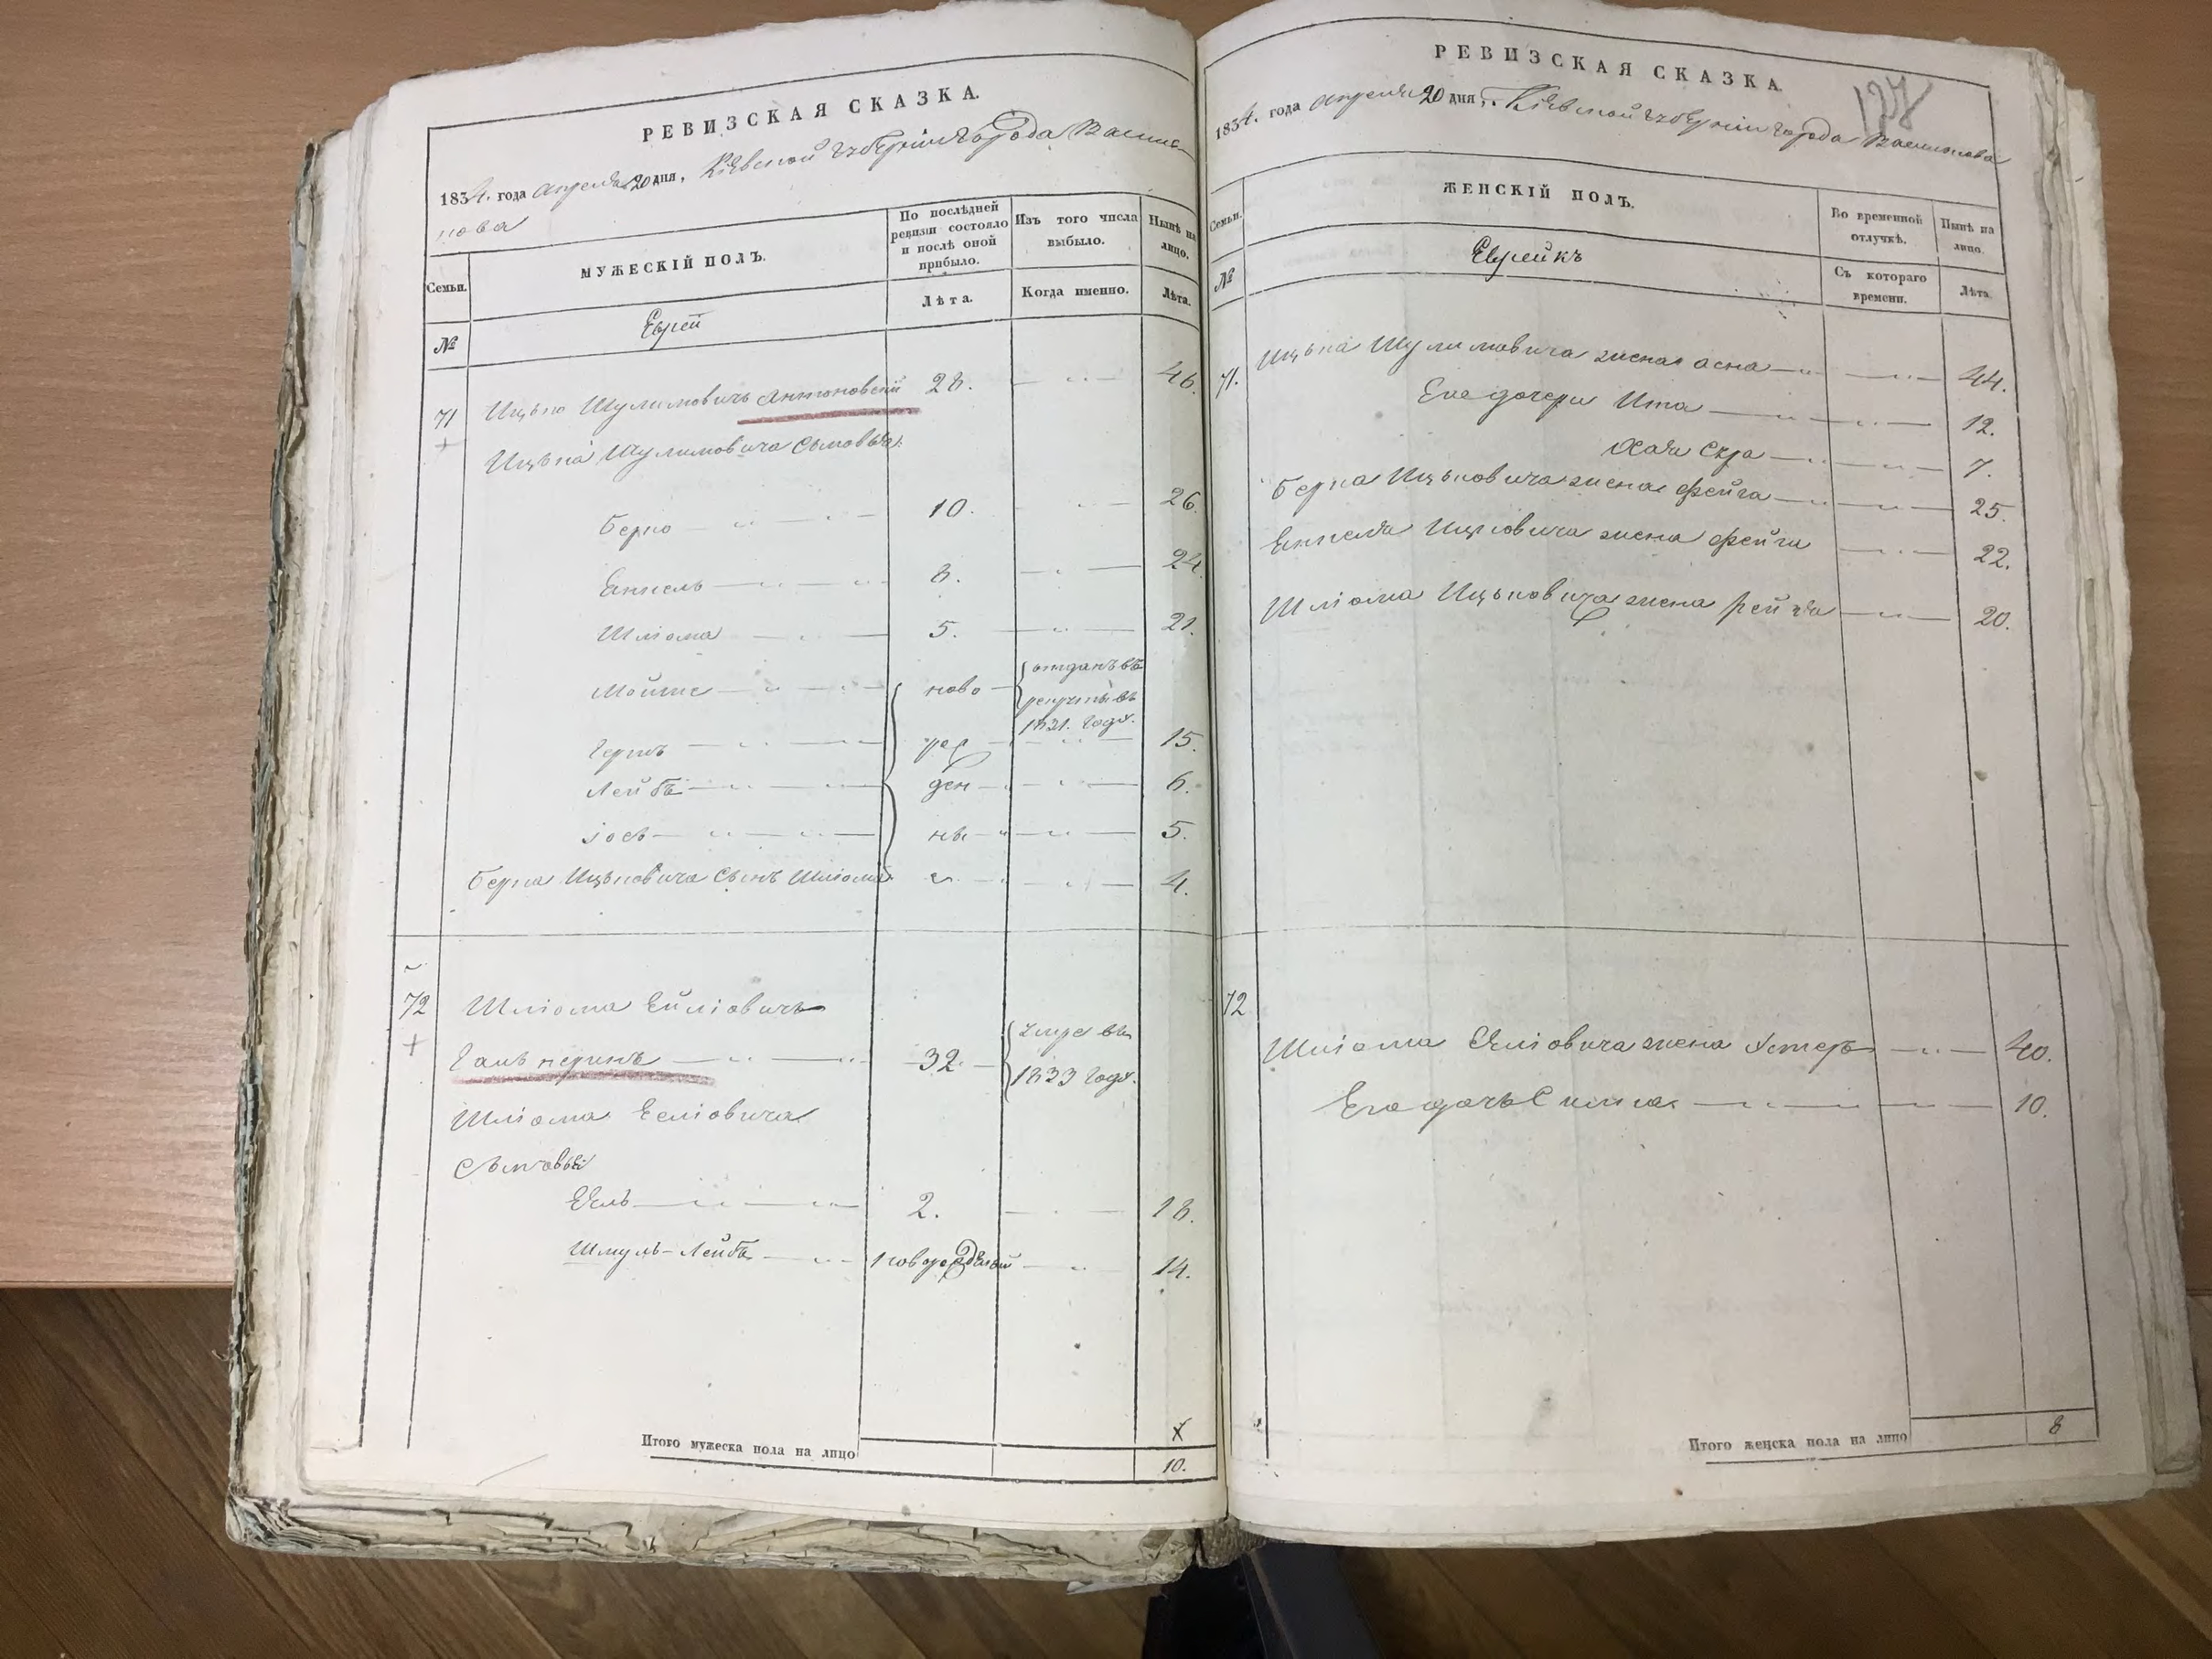 РЕВИЗСКАЯ СКАЗКА.
1834. года апреля 20 дня, Кіевской губерніи города Василь-
кова
Семьи.
МУЖЕСКІЙ ПОЛЪ.
По послѣдней ревизіи состояло и послѣ оной прибыло.
Изъ того числа выбыло.
Нынѣ на лицо.
№
Еврей
Лѣта.
Когда именно.
Лѣта.
71 Ицько Шулимовичъ Антоновскій 28. 46.
Ицька Шулимовича сыновья:
Берко 10. 26.
Янкель 8. 24.
Шліома 5. 21.
Мойше ново отданъ въ
рекруты въ
1831. году.
Гершъ рож 15.
Лейба ден 6.
Іось ны 5.
Берка Ицьковича сынъ Шліома 4.
72 Шліома Ейліовичъ
32. умре въ
1833 году.
Шліома Ееліовича
сыновья
Ель 2. 18.
Шмуль-Лейба новорожденный 14.
Итого мужеска пола на лицо
10.
РЕВИЗСКАЯ СКАЗКА.
127
1834. года апреля 20 дня, Кіевской губерніи города Василькова
Семьи.
ЖЕНСКІЙ ПОЛЪ.
Во временной отлучкѣ.
Нынѣ на лицо.
№
Еврейкъ
Съ котораго времени.
Лѣта.
71. Ицька Шулимовича жена Асна 44.
Его дочери Ита 12.
Хая Сура 7.
Берка Ицьковича жена Фейга 25.
Янкеля Ицковича жена Фейга 22.
Шліома Ицьковича жена Рейза 20.
72
Шліома Еліовича жена Устеръ 40.
Его дочь Симма 10.
Итого женска пола на лицо 8